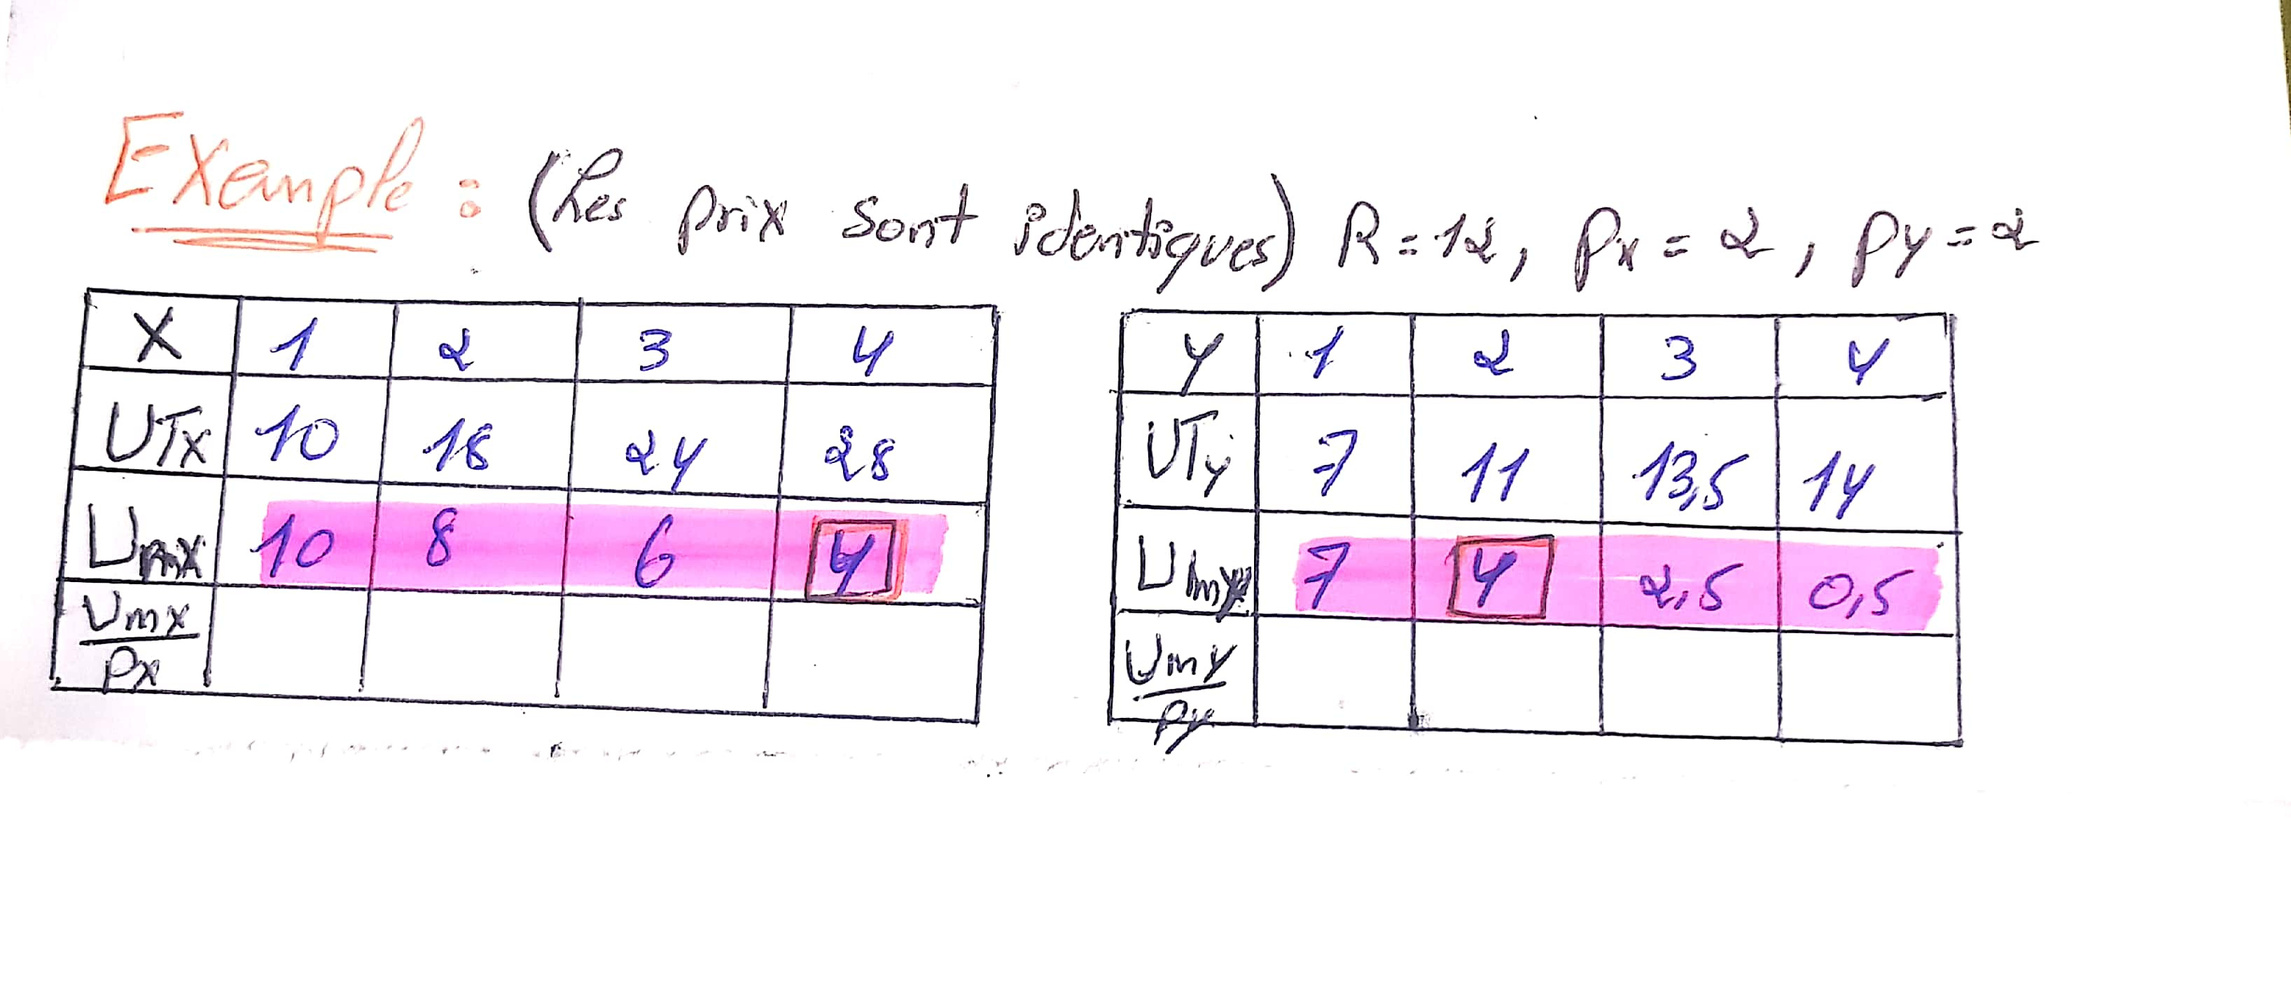 Exemple : (Les prix sont identiques) R = 12, Px = 2, Py = 2
X 1 2 3 4
UTx 10 18 24 28
Umx 10 8 6 4
Umx/Px
Y 1 2 3 4
UTy 7 11 13,5 14
Umy 7 4 2,5 0,5
Umy/Py